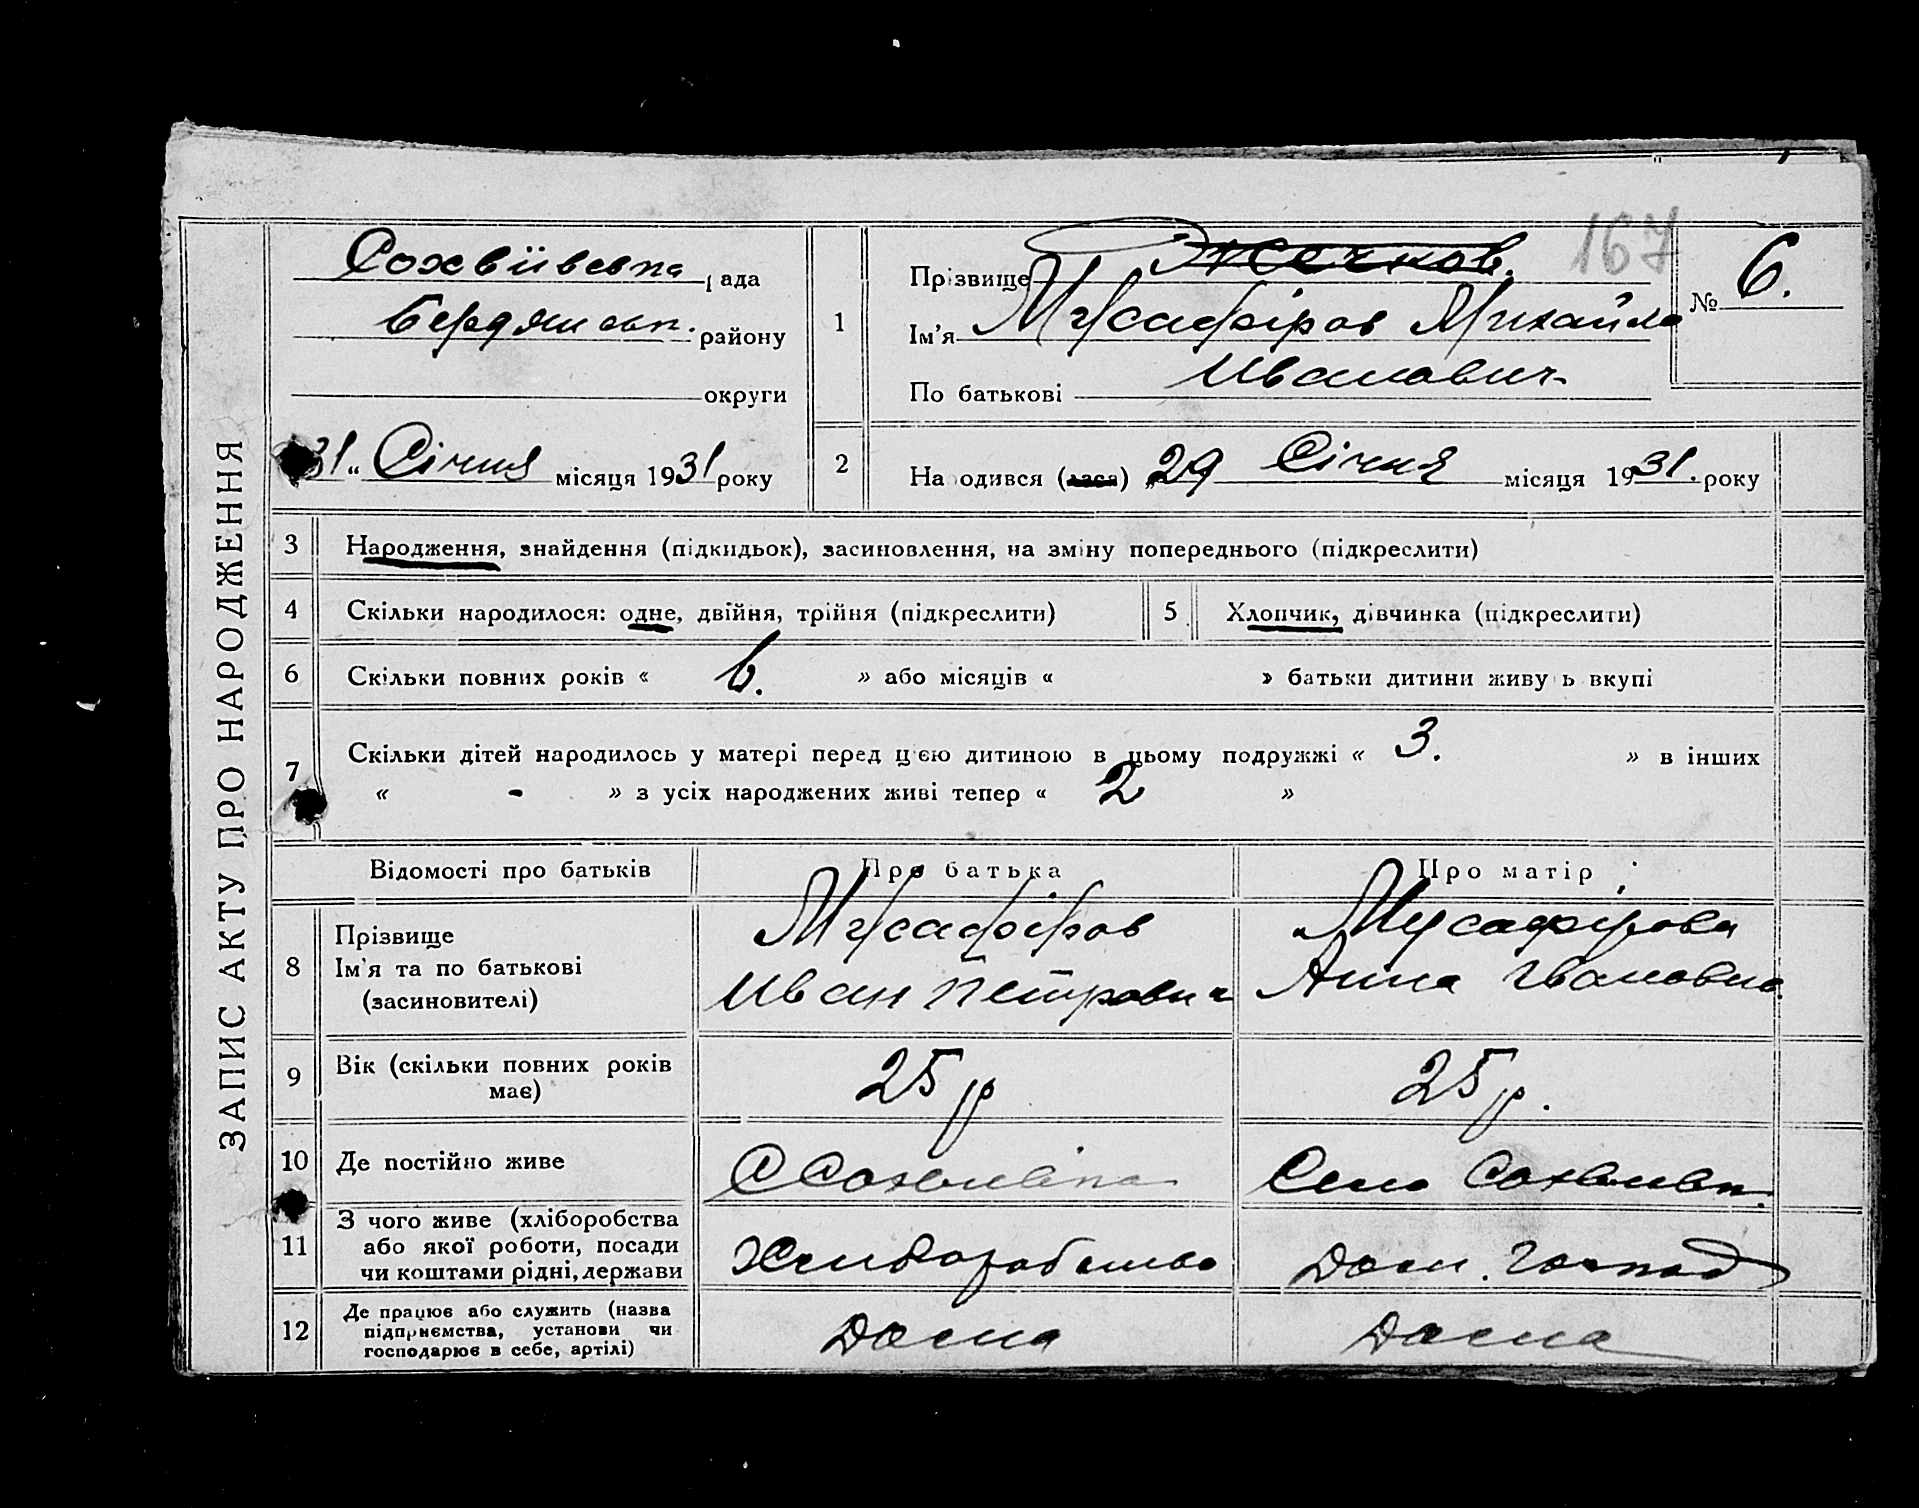 ЗАПИС АКТУ ПРО НАРОДЖЕННЯ
Сохвіівська рада
Бердянськ. району
округи
31 „ Січня місяця 1931 року
167
№ 6.
1
Прізвище
Ім'я Мусафіров Михайло
По батькові Иванович
2
Народився (лася) „ 29 Січня місяця 1931. року
3 Народження, знайдення (підкидьок), засиновлення, на зміну попереднього (підкреслити)
4 Скільки народилося: одне, двійня, трійня (підкреслити) 5 Хлопчик, дівчинка (підкреслити)
6 Скільки повних років « 6. » або місяців « » батьки дитини живуть вкупі
7 Скільки дітей народилось у матері перед цією дитиною в цьому подружжі « 3. » в інших
« - » з усіх народжених живі тепер « 2 »
Відомості про батьків Про батька Про матір
8 Прізвище
Ім'я та по батькові
(засиновителі)
Мусафіров
Иван Петрович
Мусафірова
Анна Ивановна
9 Вік (скільки повних років
має)
25 р
25 р.
10 Де постійно живе
С Сохвиївка Село Сохвиївка
11 З чого живе (хліборобства
або якої роботи, посади
чи коштами рідні, держави
Хліборобство Дом. господ
12 Де працює або служить (назва
підприємства, установи чи
господарює в себе, артілі)
Дома Дома